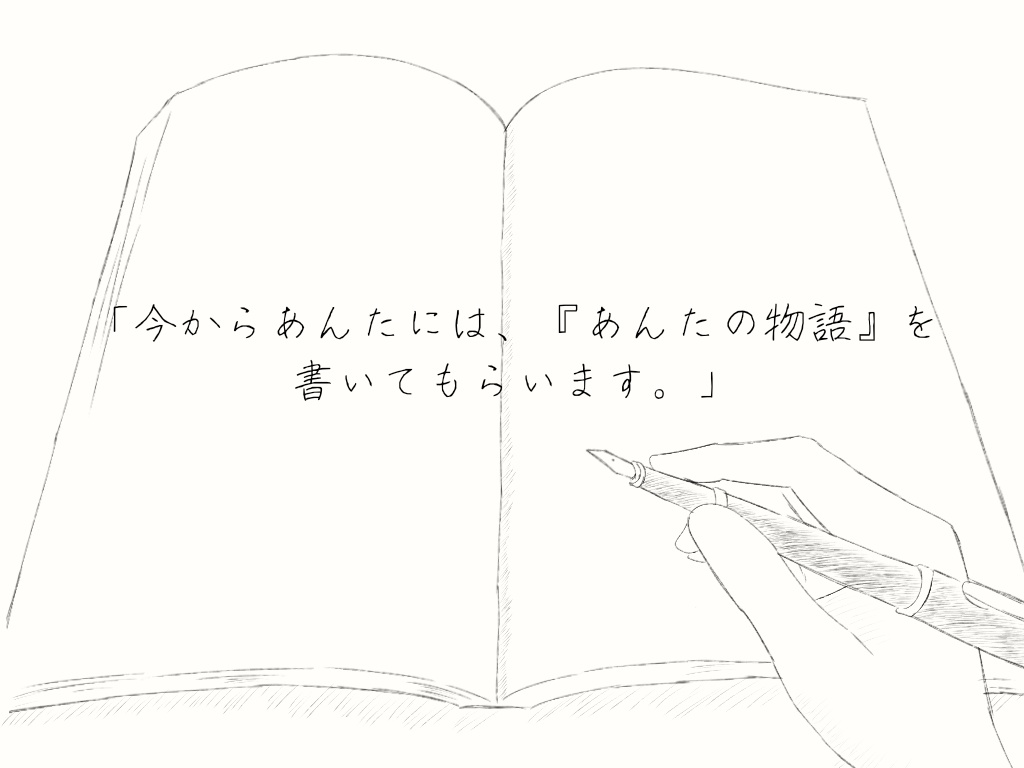 「今からあんたには、『あんたの物語』を
書いてもらいます。」